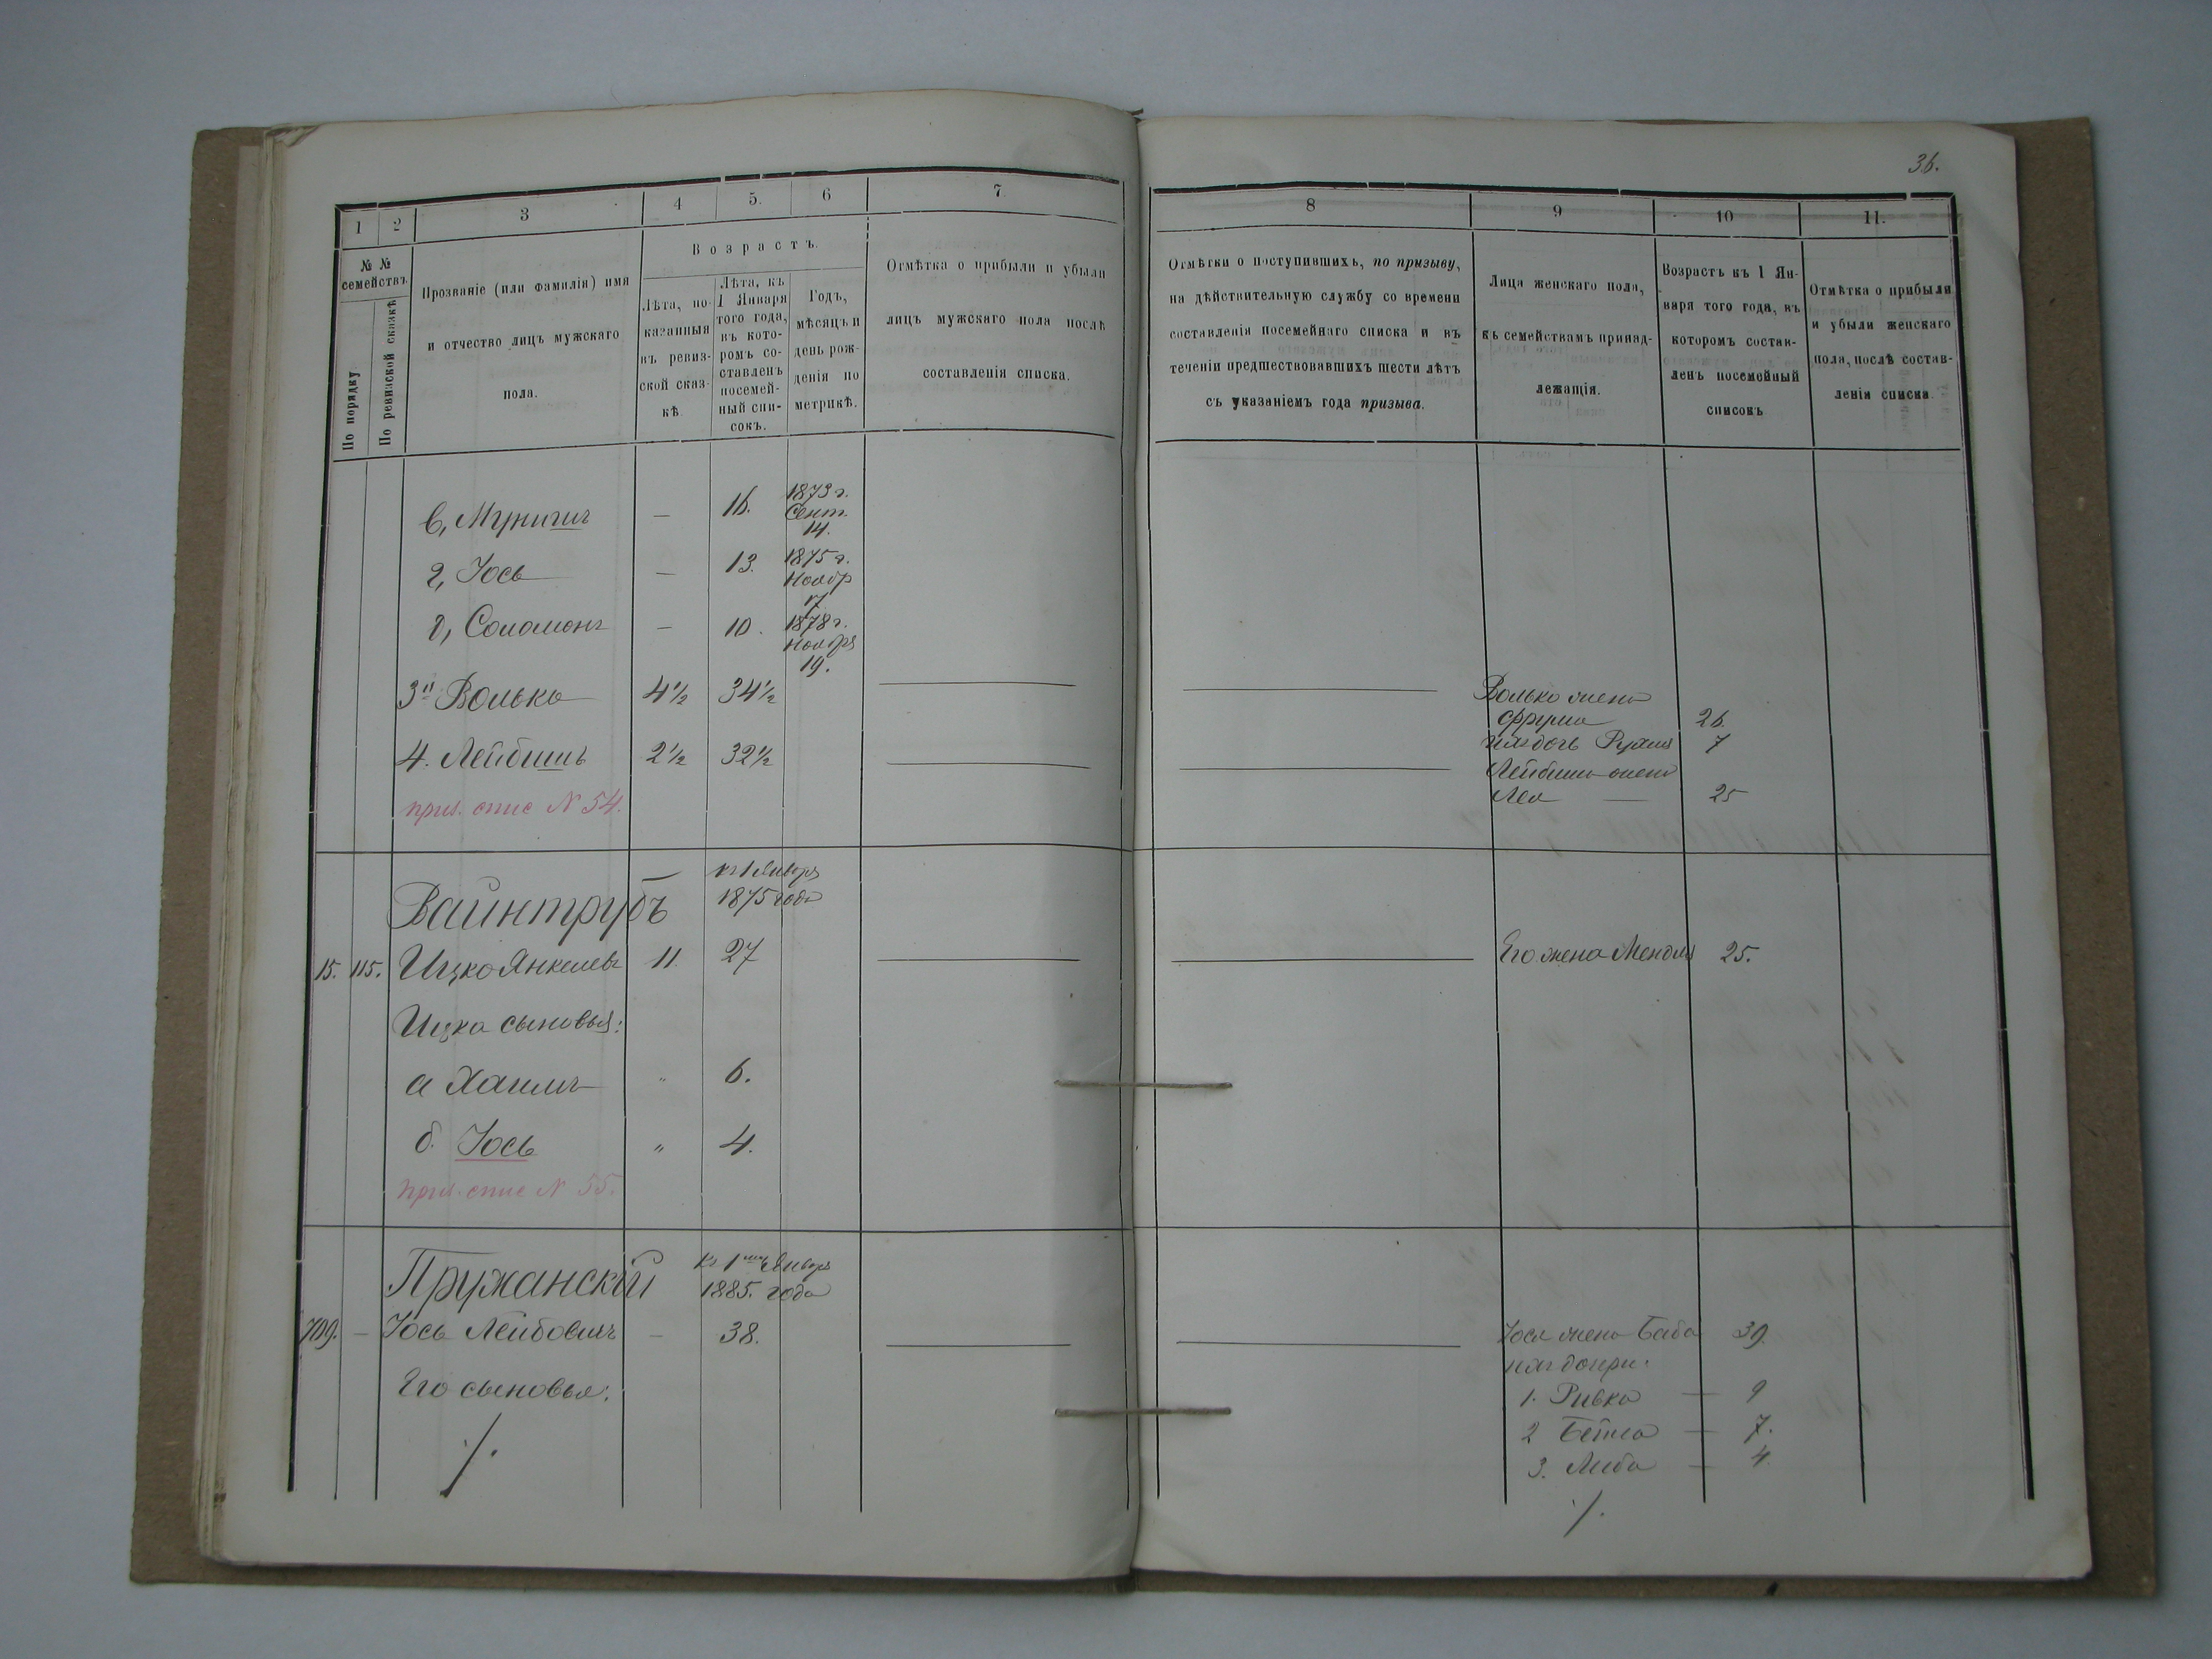 36.
1 2 3 4 5. 6 7
№ №
семействъ.
По порядку.
По ревизской сказкѣ
Прозваніе (или фамилія) имя
и отчество лицъ мужскаго
пола.
Возрастъ.
Лѣта, по-
казанныя
въ ревиз-
ской сказ-
кѣ.
Лѣта, къ
1 Января
того года,
въ кото-
ромъ со-
ставленъ
посемей-
ный спи-
сокъ.
Годъ,
мѣсяцъ и
день рож-
денія по
метрикѣ.
Отмѣтка о прибыли и убыли
лицъ мужскаго пола послѣ
составленія списка.
8 9 10 11.
Отмѣтки о поступившихъ, по призыву,
на дѣйствительную службу со времени
составленія посемейнаго списка и въ
теченіи предшествовавшихъ шести лѣтъ
съ указаніемъ года призыва.
Лица женскаго пола,
къ семействамъ принад-
лежащія.
Возрастъ къ 1 Ян-
варя того года, въ
которомъ состав-
ленъ посемейный
списокъ
Отмѣтка о прибыли
и убыли женскаго
пола, послѣ состав-
ленія списка.
в, — 16. 1873 г.
Сент.
14.
г, Іось — 13. 1875 г.
Ноябр
17
д, Соломонъ — 10. 1878 г.
Ноября
19.
3й Волько 4½ 34½
Волько жена
Фрума 26.
ихъ дочь 7
4. Лейбишъ 2½ 32½
Лейбиша жена
Леа — 25
прим. спис N 54.
Вайнтрубъ
къ 1 Января
1875 года
15. 115. Ицко Янкелевъ 11. 27 Его жена Мендля 25.
Ицка сыновья:
а Хаимъ " 6.
б. Іось " 4.
прим. спис N 55.
Пружанскій
Къ 1му Января
1885. года
709. — Іось Лейбовичъ — 38. Іося жена Баба 39.
ихъ дочери:
Его сыновья:
1. Ривка — 9
2 Бейла — 7.
3. Либа — 4.
./.
./.